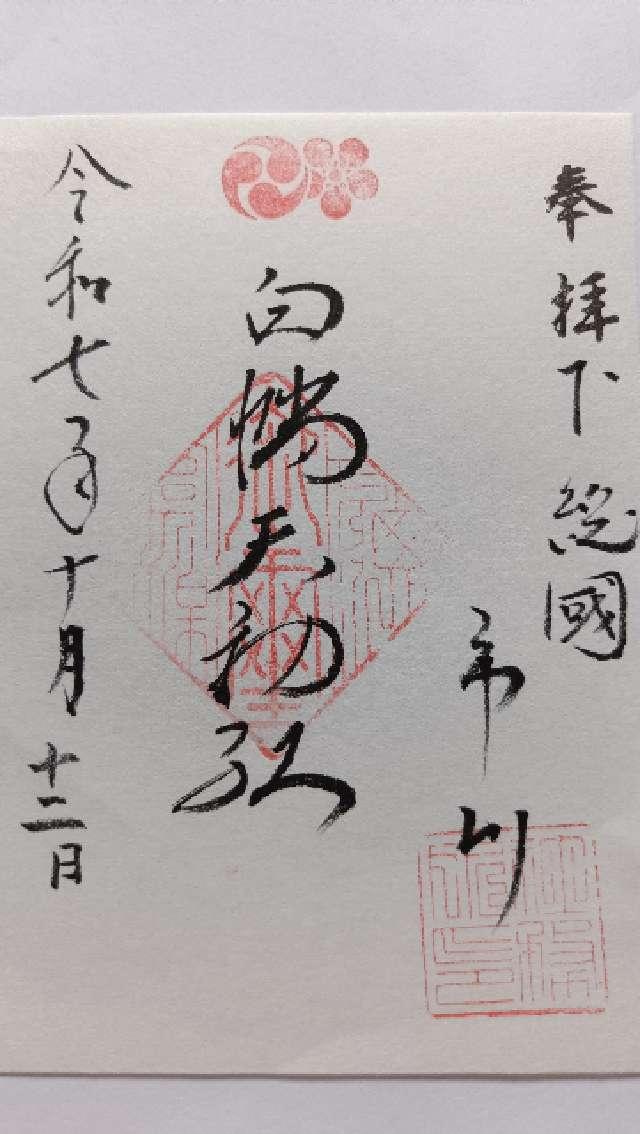 奉拝下総國
市川
白幡天神社
令和七年十月十二日